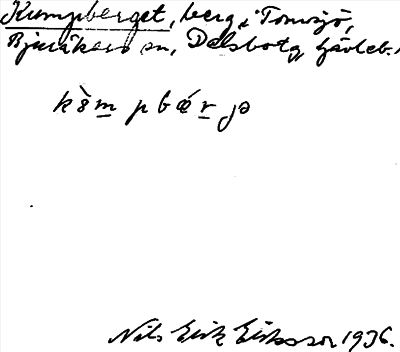 Kumpberget, berg i Tomsjö,
Bjuråkers sn, Delsbotg, Gävleb.l
kòmpbǽrjə
Nils Erik Eriksson 1936.